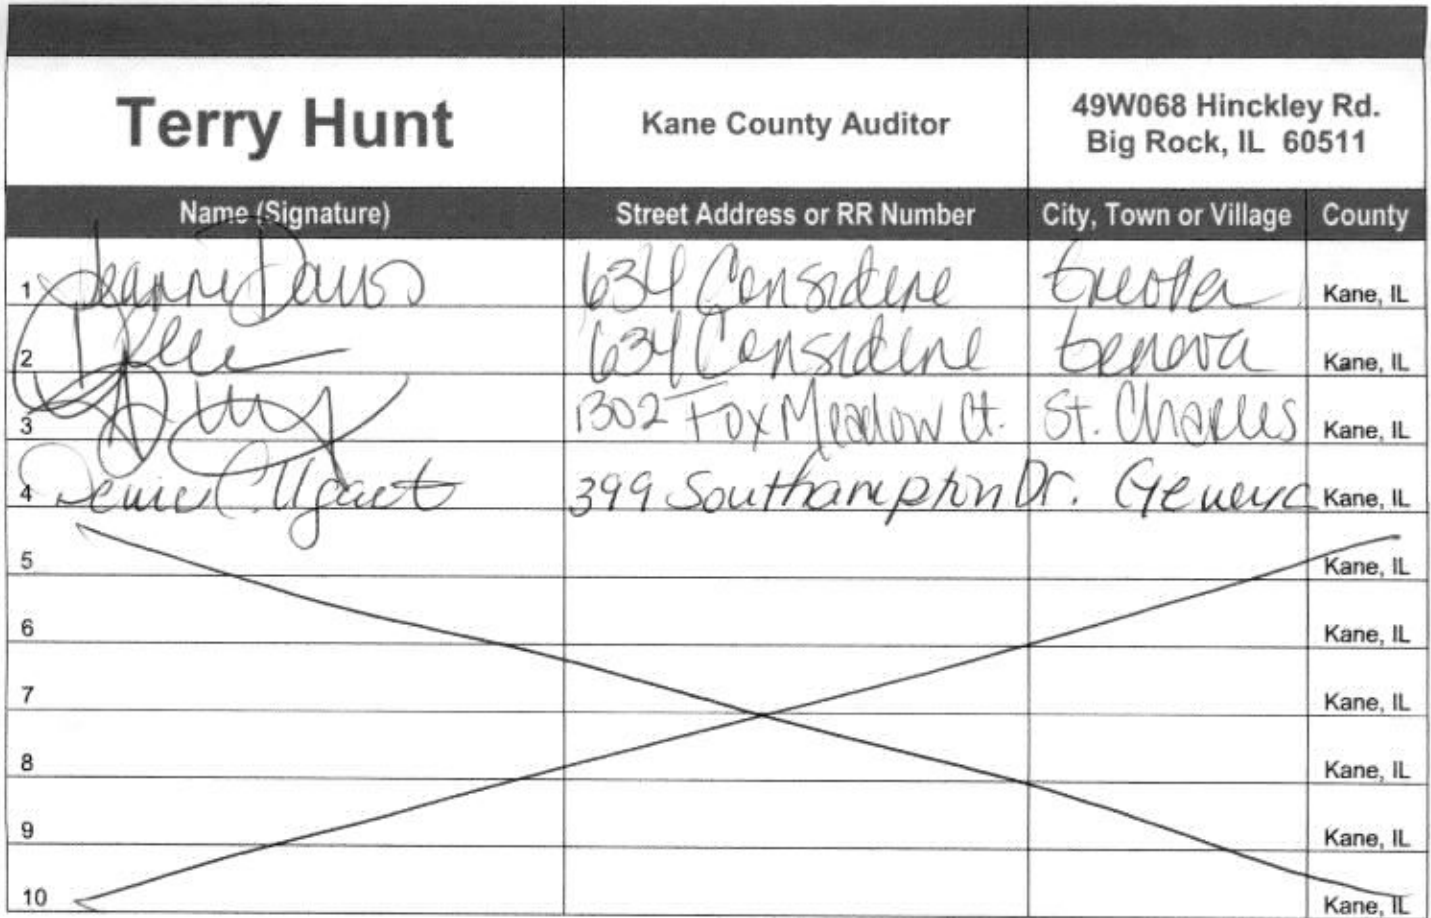 Terry Hunt
Kane County Auditor
49W068 Hinckley Rd.
Big Rock, IL 60511
Name (Signature) Street Address or RR Number City, Town or Village County
1 Jeanne Davis 634 Considine Geneva Kane, IL
2 634 Considine Geneva Kane, IL
3 1302 Fox Meadow Ct. St. Charles Kane, IL
4 399 Southampton Dr. Geneva Kane, IL
5 Kane, IL
6 Kane, IL
7 Kane, IL
8 Kane, IL
9 Kane, IL
10 Kane, IL